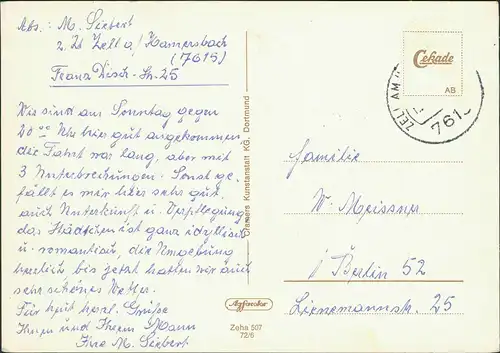 Abs.: M. Siebert
z. Zt Zell a/Hamersbach
(7615)
Franz Disch-Str. 25
Wir sind am Sonntag gegen
20 00 Uhr hier gut angekommen,
die Fahrt war lang, aber mit
3 Unterbrechungen. Sonst ge-
fällt es mir hier sehr gut,
auch Unterkunft u. Verpflegung
das Städtchen ist ganz idyllisch
u. romantisch, die Umgebung
herrlich, bis jetzt hatten wir auch
sehr schönes Wetter.
Für heut herzl. Grüße
Ihnen und Ihrem Mann
Ihre M. Siebert
Cramers Kunstanstalt KG, Dortmund
Cekade
AB
ZELL AM
761
Familie
W. Meissner
1 Berlin 52
Zeha 507
72/6
25